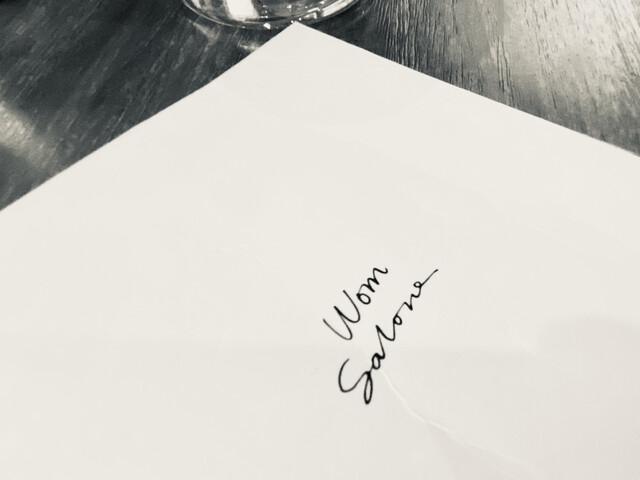 Wom
Salone